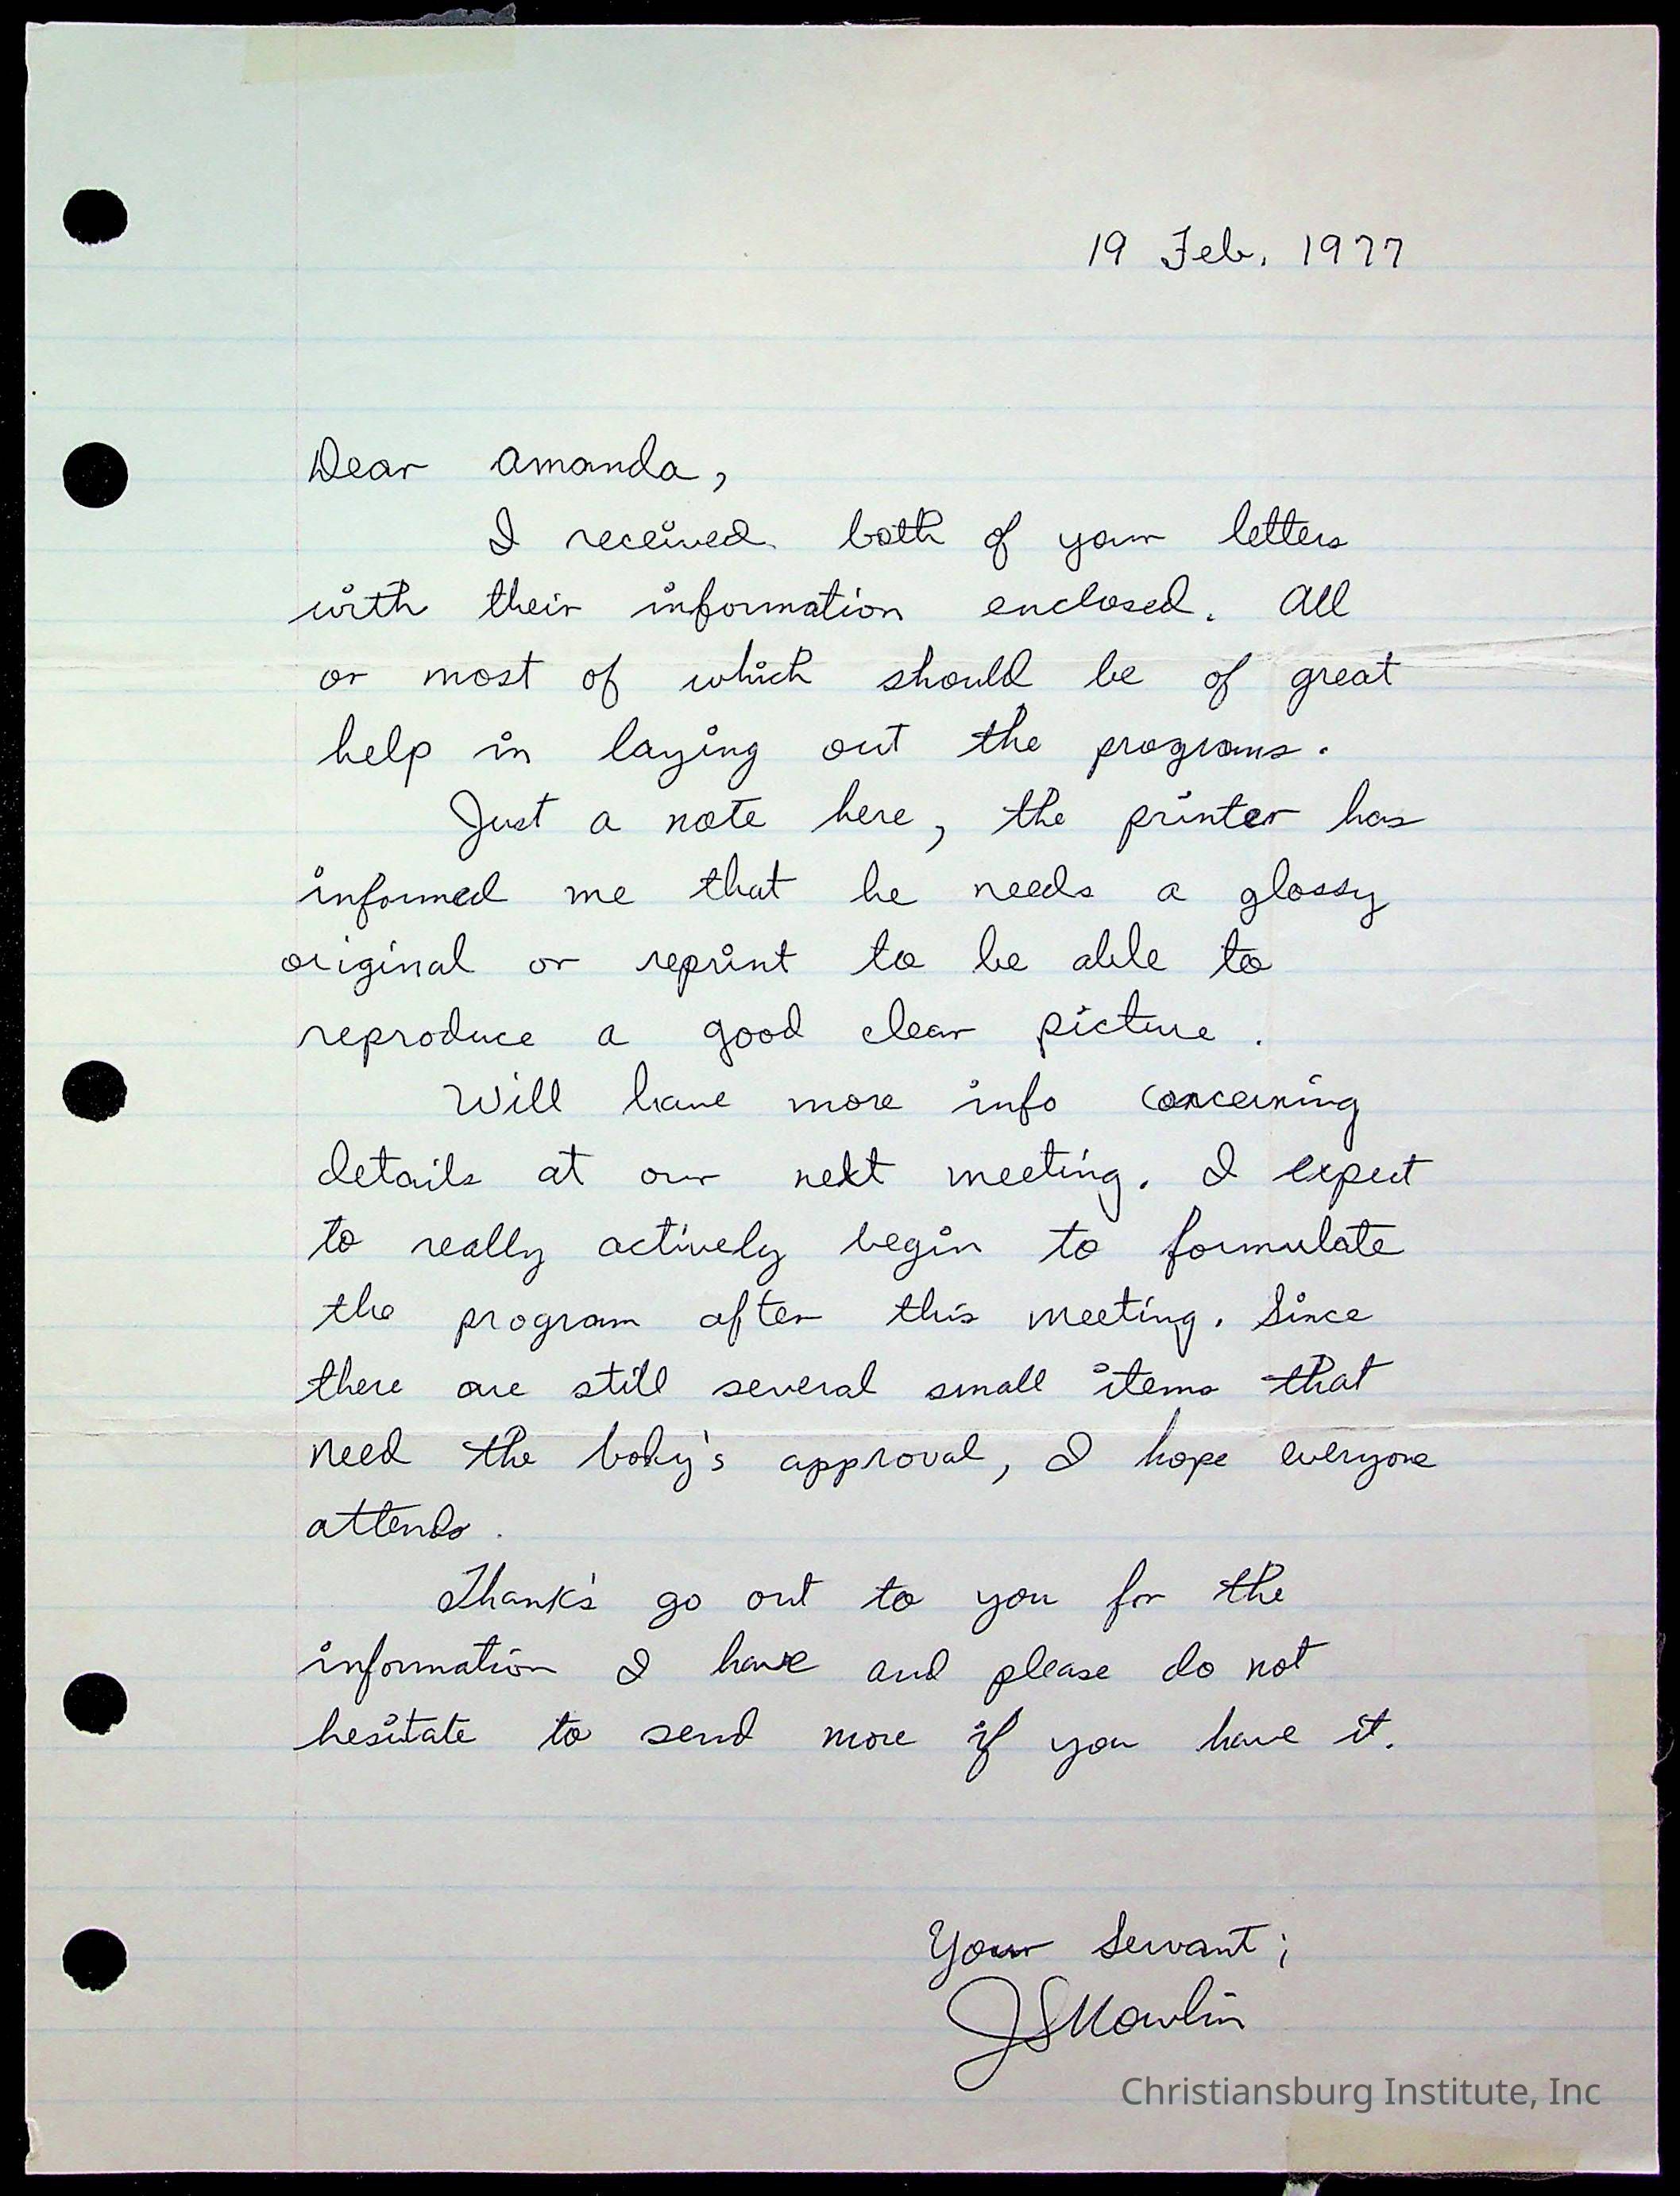 19 Feb. 1977
Dear Amanda,
I received both of your letters
with their information enclosed. All
or most of which should be of great
help in laying out the programs.
Just a note here, the printer has
informed me that he needs a glossy
original or reprint to be able to
reproduce a good clear picture.
Will have more info concerning
details at our next meeting. I expect
to really actively begin to formulate
the program after this meeting. Since
there are still several small items that
need the body's approval, I hope everyone
attends.
Thank's go out to you for the
information I have and please do not
hesitate to send more if you have it.
Your Servant;
Christiansburg Institute, Inc